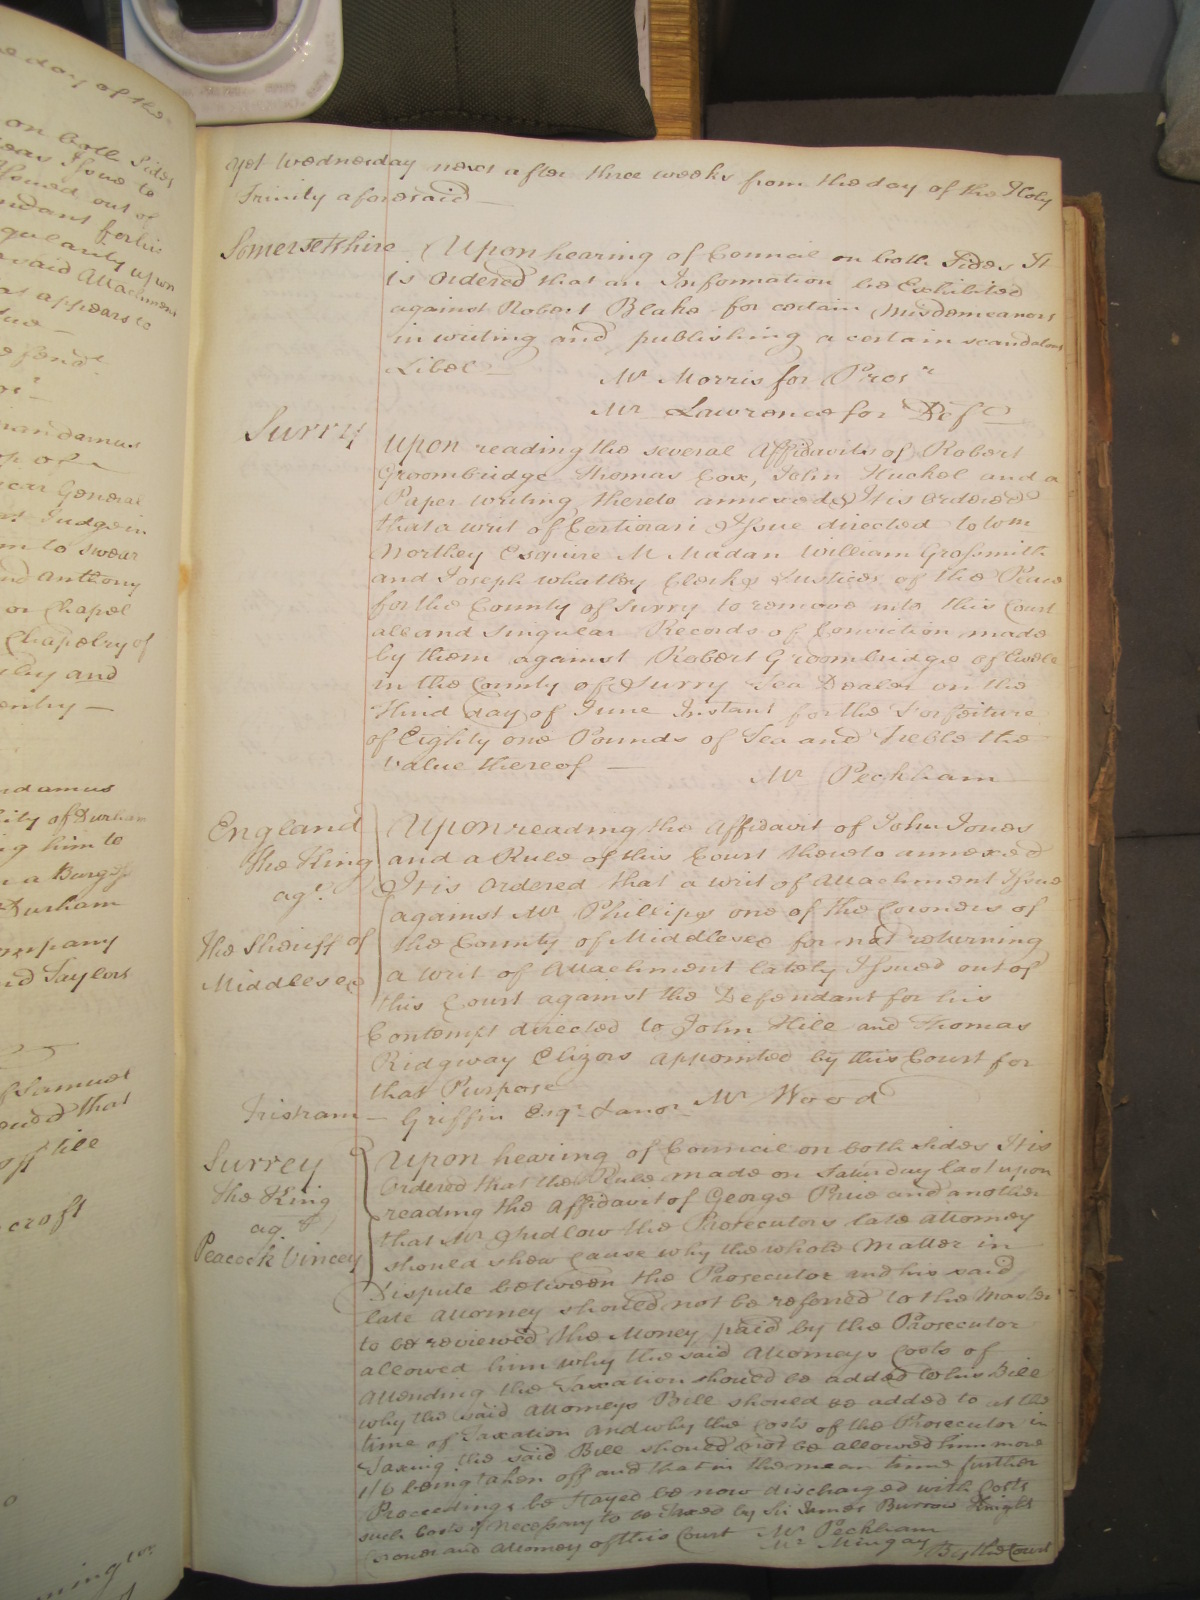 yet Wednesday next after three weeks from the day of the Holy
Trinity aforesaid —
Somersetshire Upon hearing of Council on both Sides It
is Ordered that an Information be Exhibited
against Robert Blake for certain Misdemeanors
in writing and publishing a certain scandalous
Libel —
Mr Morris for Prosr
Mr Lawrence for Def
Surry
Upon reading the several Affidavits of Robert
Groombridge Thomas Cox, John Huckel and a
Paper writing thereto annexed It is Ordered
that a writ of Certiorari Issue directed to Wm
Northey Esquire M Madan William Grossmith
and Joseph Whatley Clerks Justices of the Peace
for the County of Surry to remove into this Court
all and Singular Records of Conviction made
by them against Robert Groombridge of Ewell
in the County of Surry Tea Dealer on the
Third day of June Instant for the Forfeiture
of Eighty one Pounds of Tea and Treble the
value thereof —
Mr Peckham
England
The King
agt
The Sheriff of
Middlesex
Upon reading the Affidavit of John Jones
and a Rule of this Court thereto annexed
It is Ordered that a writ of Attachment Issue
against Mr Phillips one of the Coroners of
the County of Middlesex for not returning
a Writ of Attachment lately Issued out of
this Court against the Defendant for his
Contempt directed to John Hill and Thomas
Ridgway Elizors appointed by this Court for
that Purpose
Mr Wood
Tristram — Griffin Esqr
Surrey
The King
agt
Peacock Vincey
Upon hearing of Council on both sides It is
Ordered that the Rule made on Saturday last upon
reading the Affidavit of George Price and another
that Mr Ludlow the Prosecutors late Attorney
should shew cause why the whole Matter in
Dispute between the Prosecutor and his said
late Attorney should not be referred to the Master
to be reviewed the Money paid by the Prosecutor
allowed him why the said Attorneys Costs of
Attending the Taxation should be added to his Bill
why the said Attorneys Bill should be added to at the
time of Taxation and why the Costs of the Prosecutor in
Taxing the said Bill should not be allowed him more
1/6 being taken off and that in the mean time further
Proceedings be Stayed be now discharged with Costs
such Costs if necessary to be Taxed by Sir James Burrow Knight
Coroner and Attorney of this Court Mr Peckham
Mr Mingay
By the Court